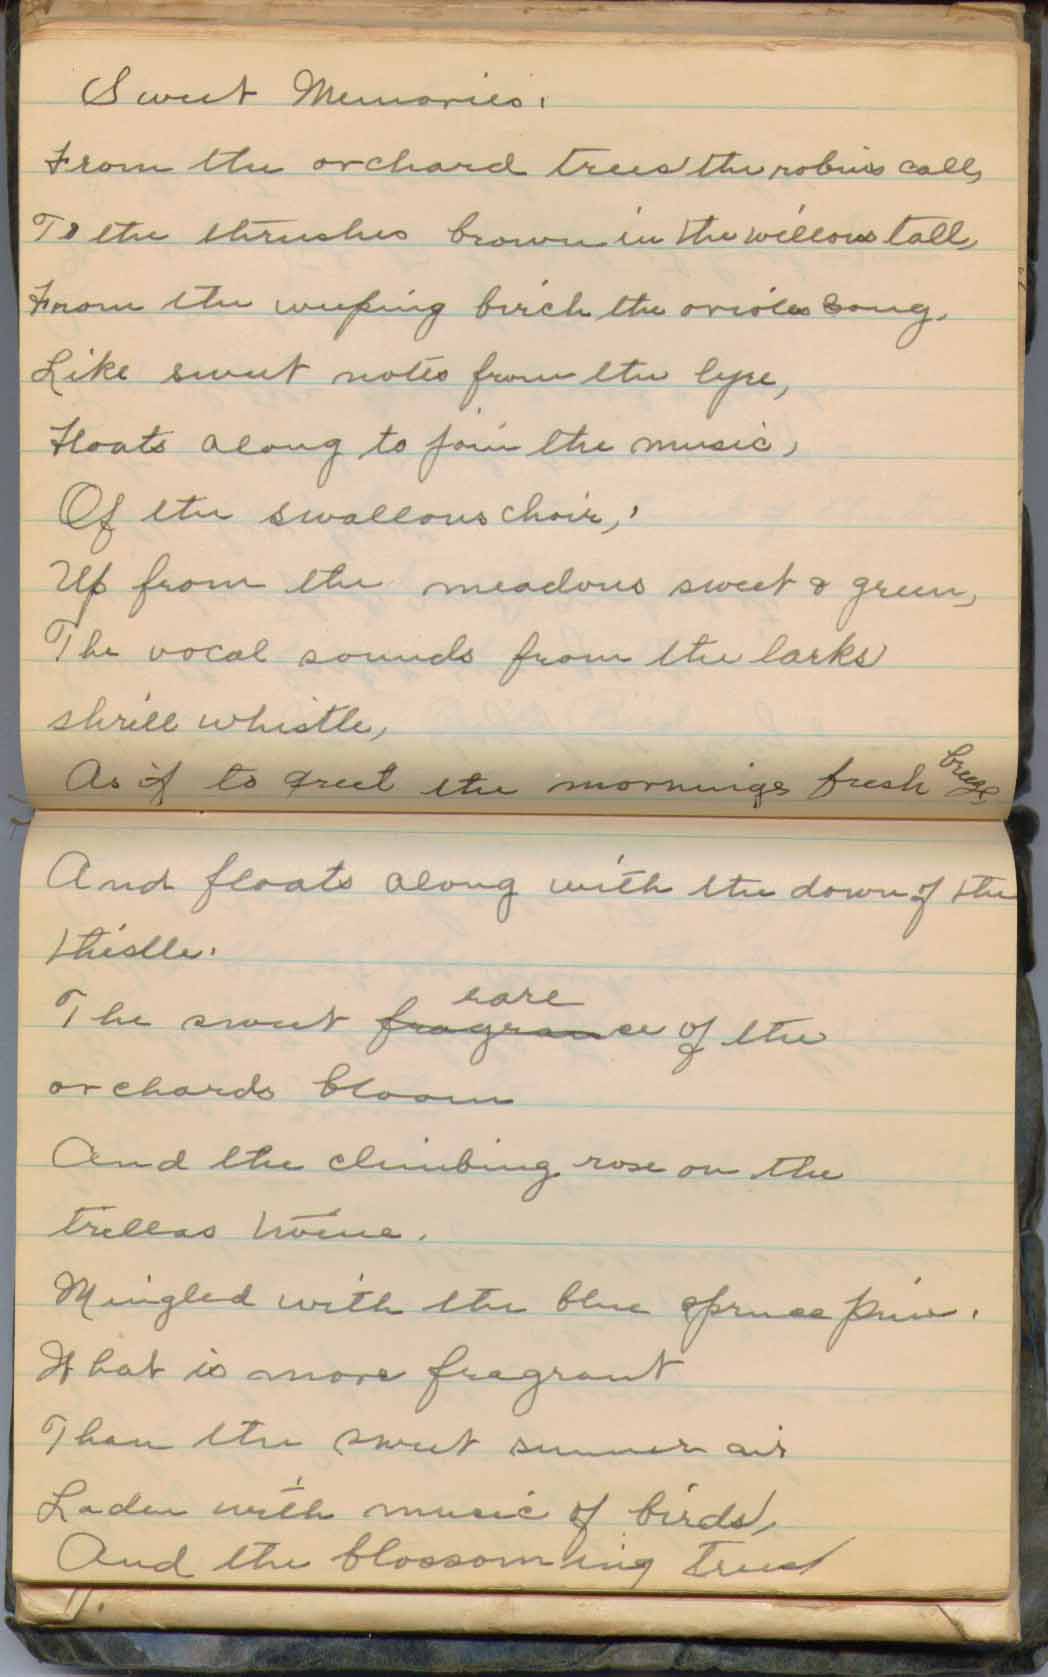 Sweet Memories.
From the orchard trees the robins call,
To the thrushes brown in the willows tall,
From the weeping birch the orioles song,
Like sweet notes from the lyre,
Floats along to join the music,
Of the swallows choir,
Up from the meadows sweet & green,
The vocal sounds from the larks
shrill whistle,
As if to greet the mornings fresh breeze
And floats along with the down of the
thistle.
The sweet rare fragrance of the
orchards bloom
And the climbing rose on the
trellas twine.
Mingled with the blue spruce pine.
What is more fragrant
Than the sweet summer air
Laden with music of birds,
And the blossoming trees